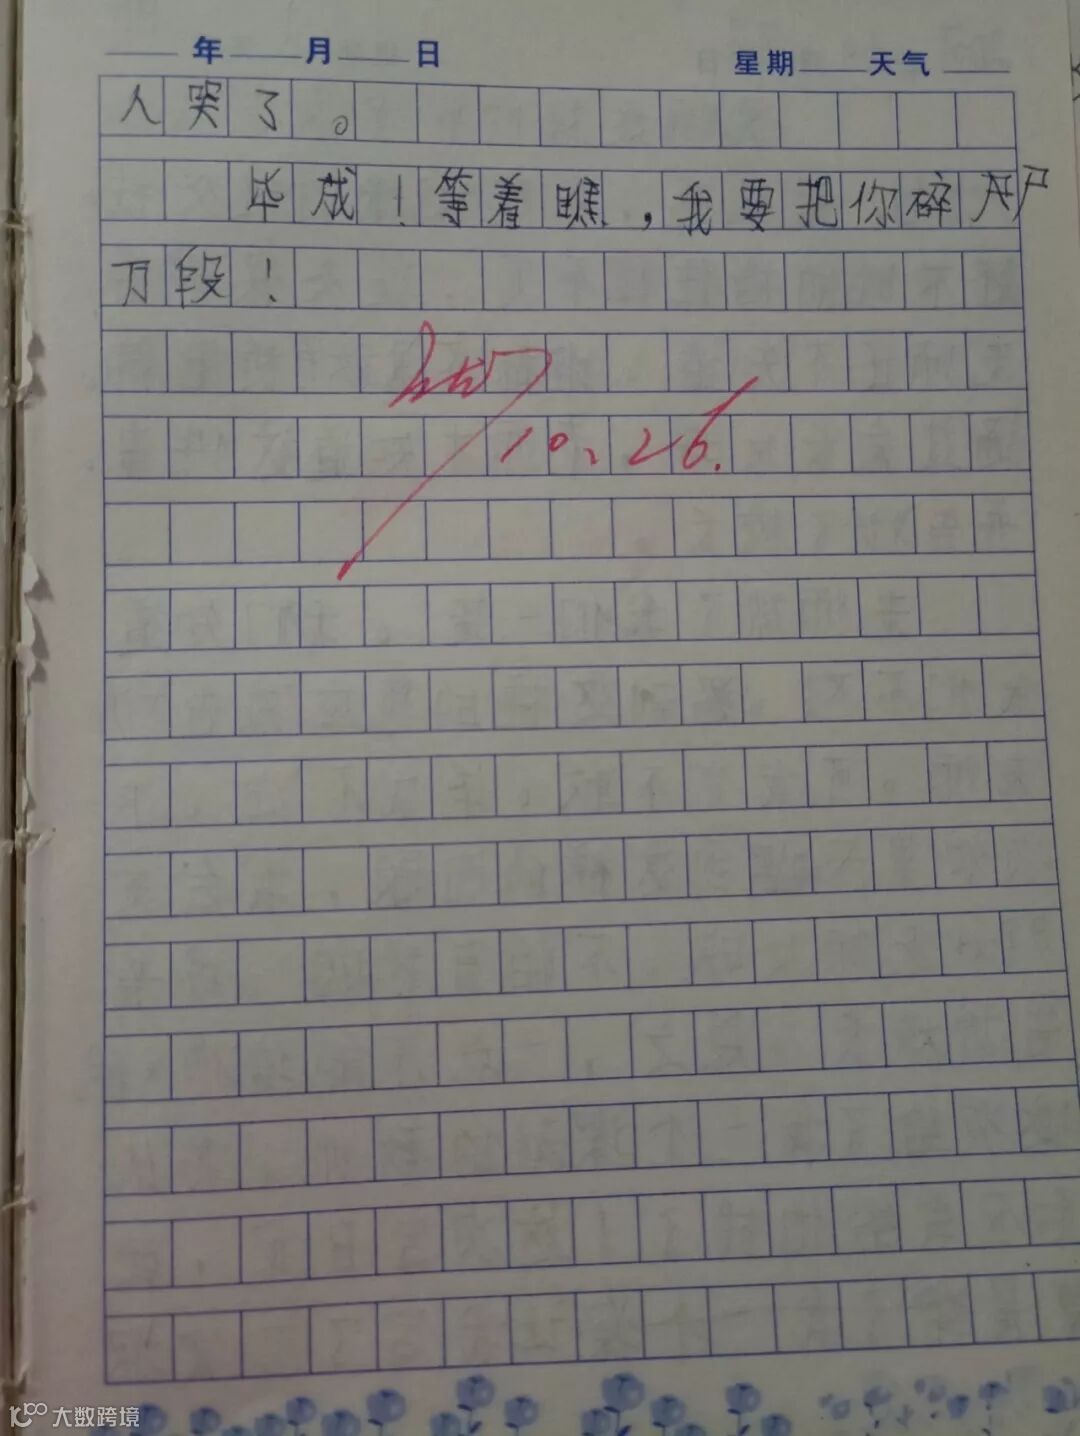 年 月 日 星期 天气
人哭了。
毕成！等着瞧，我要把你碎尸
万段！
阅
10.26.
大数跨境